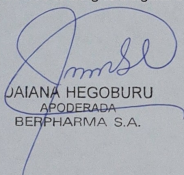 DAIANA HEGOBURU
APODERADA
BERPHARMA S.A.